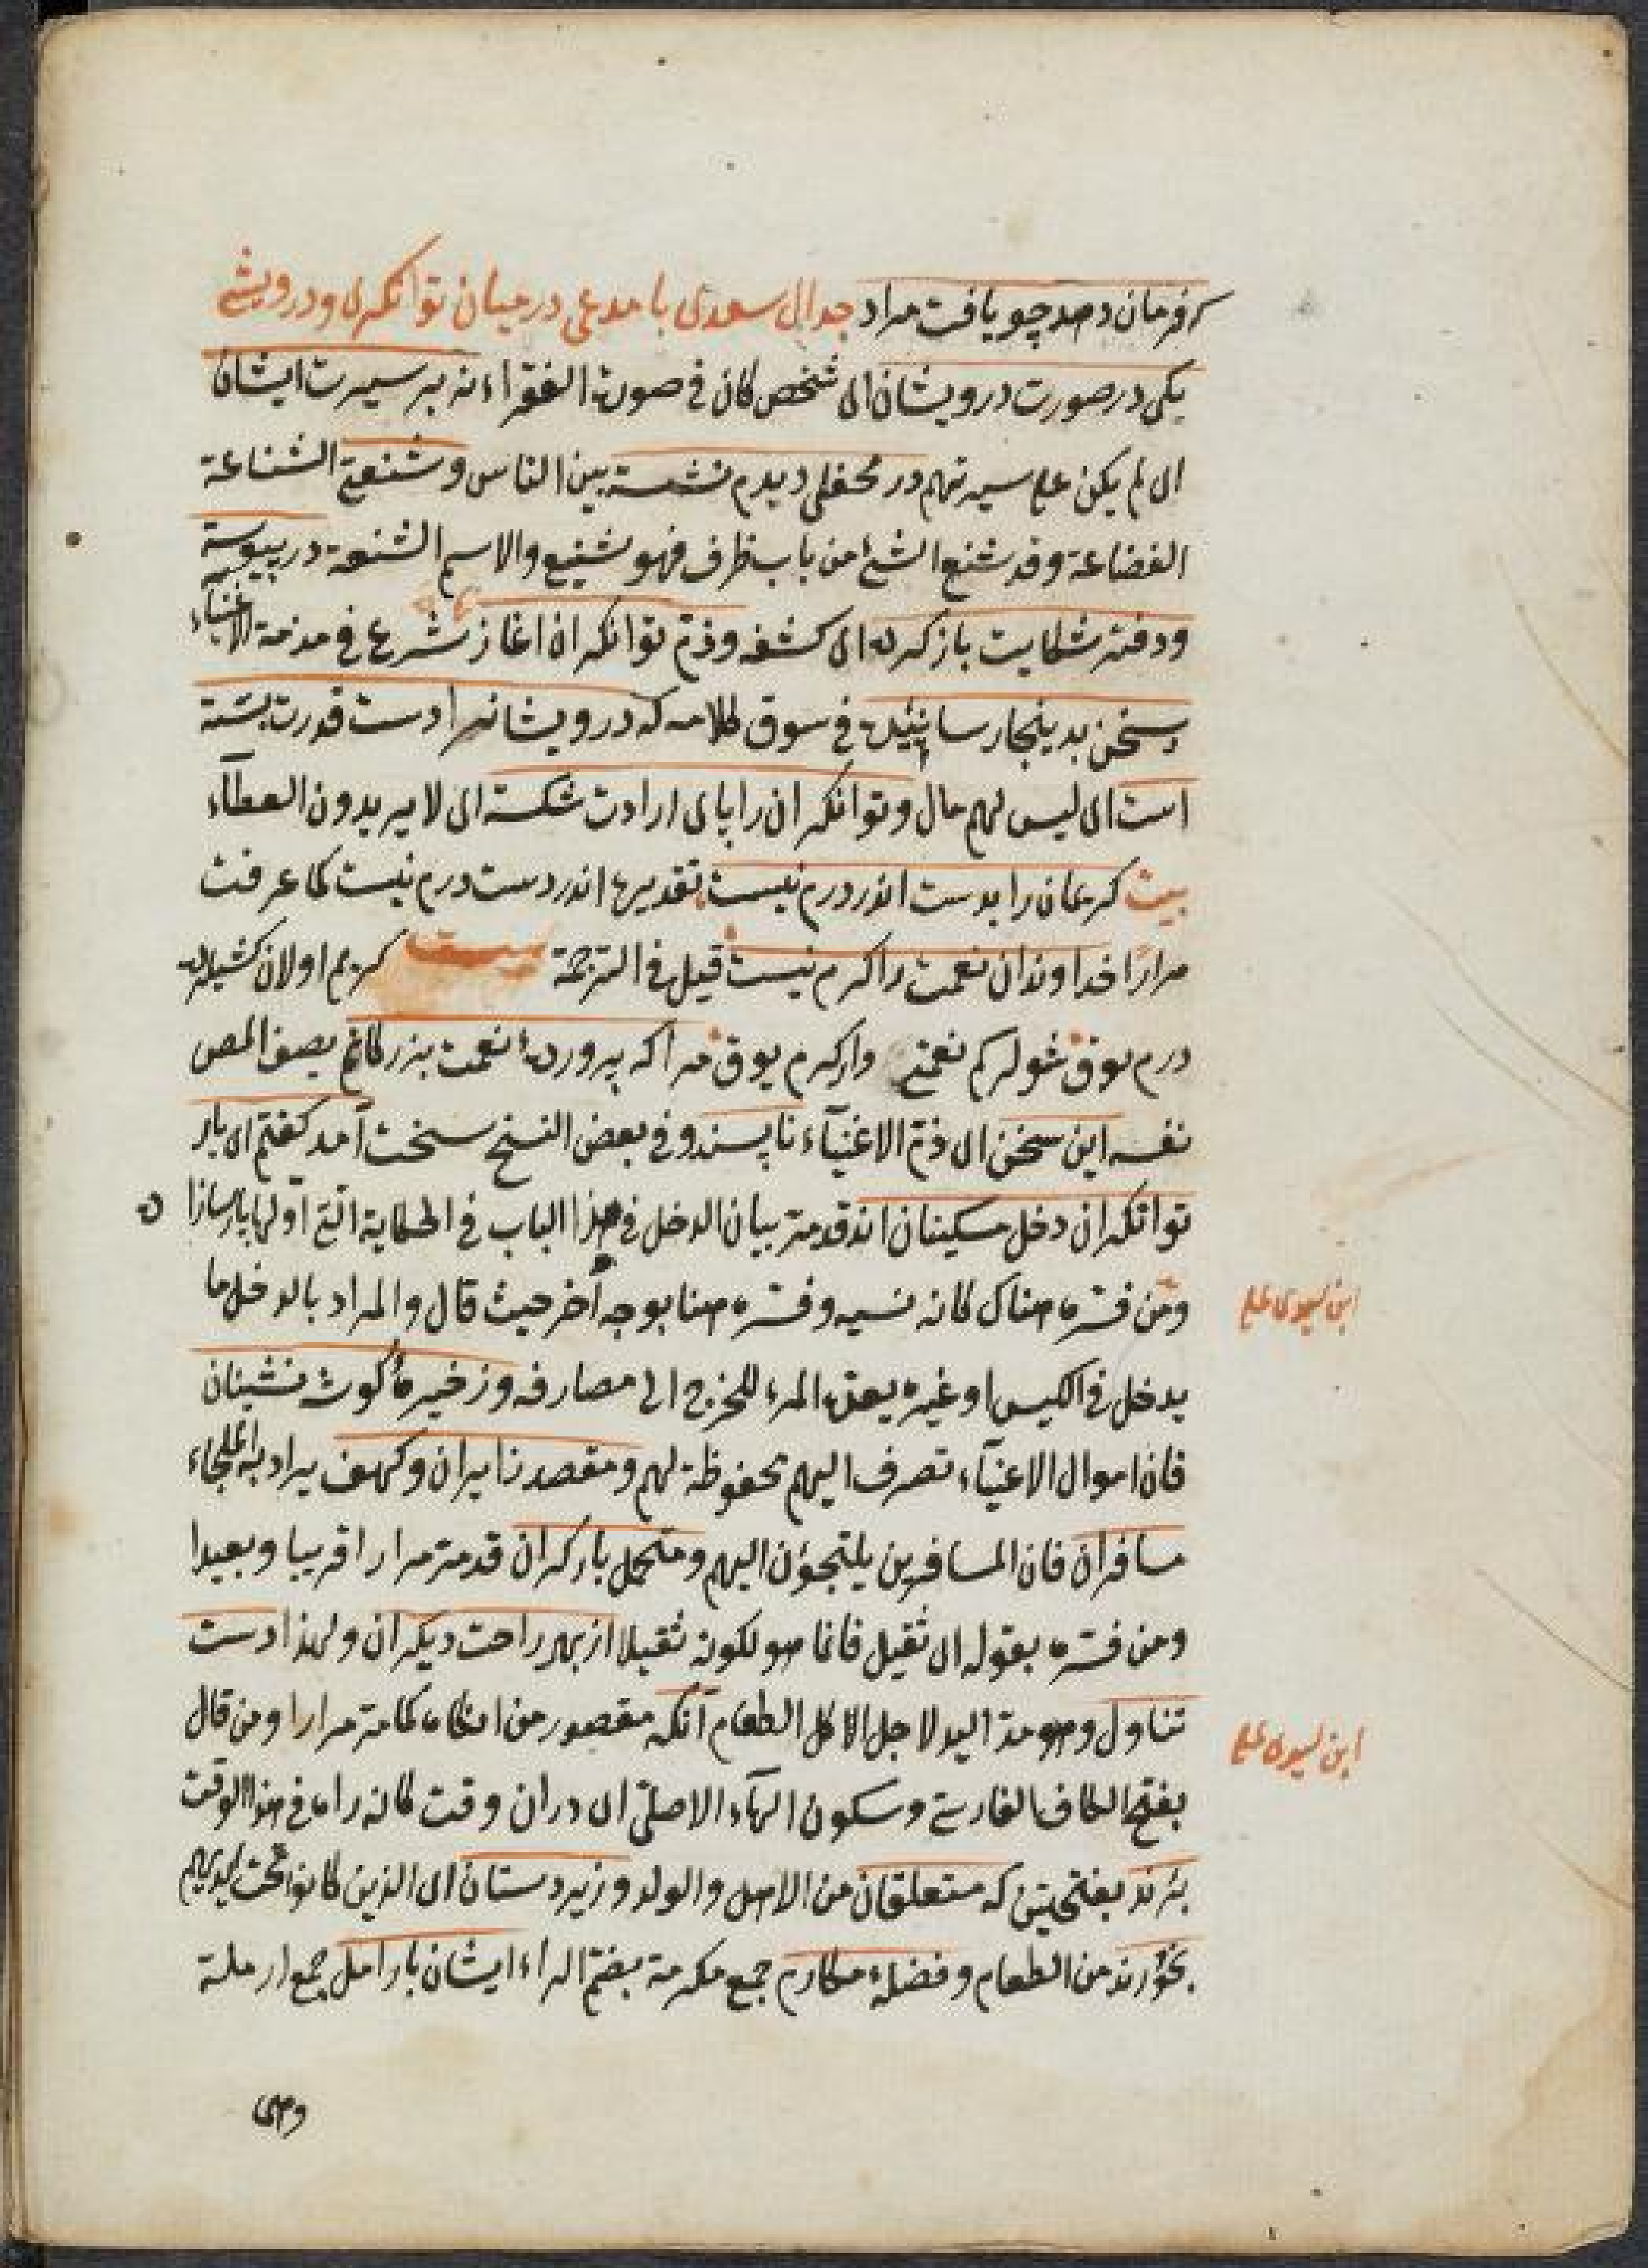 که فرمان دهد چو یافت مراد جدال سعدی با مدعی در میان توانکری و درویشی
یکی در صورت درویشان ای شخص کان فی صورة الفقراء نه بر سیرت ایشان
ای لم یکن علی سیرتهم در محفلی دیدم نشسته بین الناس و شنعة الشناعة
الفضاعة وقد شنع الشئ من باب ظرف فهو شنیع والاسم الشنعة در پیوسته
ودفتر شکایت باز کرده ای کشفه وذم توانکران اغاز شرع فی مذمة الاغنیاء
سخن بدینجا رسانیده فی سوق کلامه که درویشانرا دست قدرت بسته
است ای لیس لهم مال وتوانکران را پای ارادت شکسته ای لا یریدون العطاء
بیت کریمان را بدست اندر درم نیست تقدیره اندر دست درم نیست کما عرفت
مرارا خداوندان نعمت را کرم نیست قیل فی الترجمة کریم اولان کشیلرده
درم یوق شولرکم نعمتی وار کرم یوق مرا که پرورده نعمت بزرکانم یصف المص
نفسه این سخن ای ذم الاغنیاء ناپسند وفی بعض النسخ سخت آمد کفتم ای یار
توانکران دخل مسکینان اند قد مر بیان الدخل فی هذا الباب فی الحکایة التی اولها پارسازاده
ومن فسره هناک کانه نسیه وفسره هنا بوجه آخر حیث قال والمراد بالدخل ما
یدخل فی الکیس او غیره یعده المرء للخرج الی مصارفه وذخیره کوشه نشینان
فان اموال الاغنیاء تصرف الیهم محفوظة لهم ومقصد زایران وکهف یراد به الملجاء
مسافران فان المسافرین یلتجؤن الیهم ومتحمل بار کران قد مر مرارا قریبا وبعیدا
ومن فسره بقوله ای ثقیل فانما هو لکونه ثقیلا از بهر راحت دیکران ولهذا دست
تناول وهو مد الید لاجل الاکل الطعام آنکه مقصور من انکاه کما مر مرارا ومن قال
بفتح الکاف الفارسی وسکون الهاء الاصلی ای دران وقت کانه راه فی هذا الوقت
برند بفتحتین که متعلقان من الاهل والولد وزیردستان ای الذین کانوا تحت ایدیهم
بخورند من الطعام وفضله مکارم جمع مکرمة بضم الراء ایشان بارامل جمع ارملة
وهی
ابن سیدی علی
ابن سیدی علی